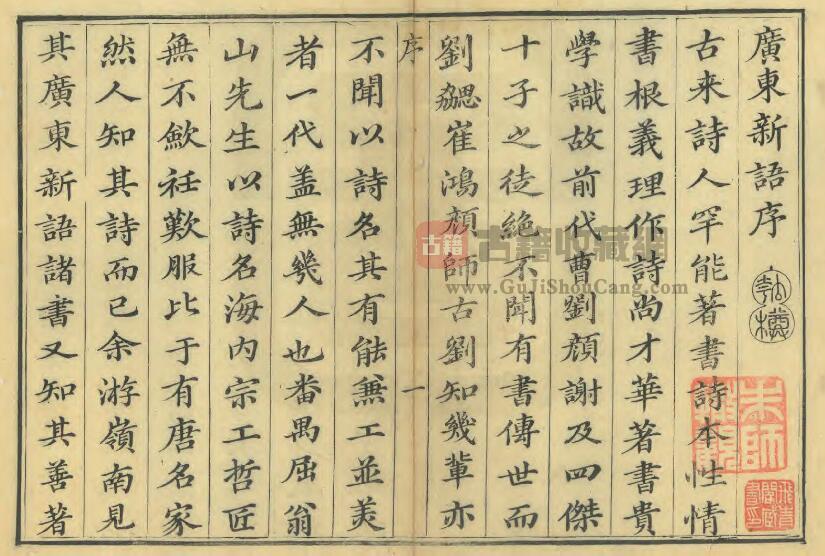 廣東新語序
古来詩人罕能著書詩本性情
書根義理作詩尚才華著書貴
學識故前代曹劉顏謝及四傑
十子之徒絶不聞有書傳世而
劉勰崔鴻顏師古劉知幾輩亦
序 一
不聞以詩名其有能兼工並美
者一代盖無幾人也番禺屈翁
山先生以詩名海内宗工哲匠
無不歛衽歎服比于有唐名家
然人知其詩而已余游嶺南見
其廣東新語諸書又知其善著
朱師
轍觀
飛青
閣藏
書印
古籍 古籍收藏網
www.GuJiShouCang.com